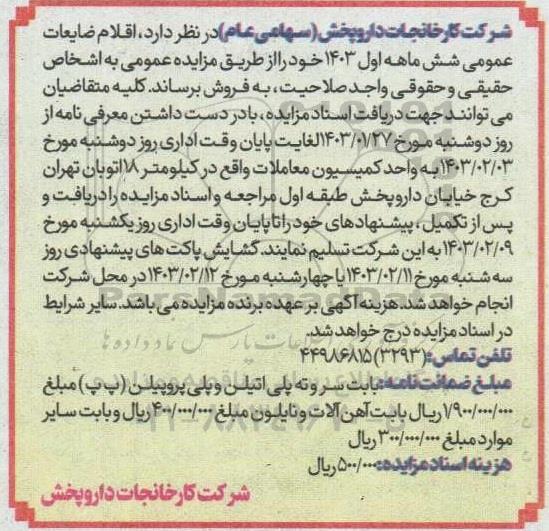 شرکت کارخانجات داروپخش (سهامی عام) در نظر دارد، اقلام ضایعات
عمومی شش ماهه اول ۱۴۰۳ خود را از طریق مزایده عمومی به اشخاص
حقیقی و حقوقی واجد صلاحیت، به فروش برساند. کلیه متقاضیان
می توانند جهت دریافت اسناد مزایده، با در دست داشتن معرفی نامه از
روز دوشنبه مورخ ۱۴۰۳/۰۱/۲۷ لغایت پایان وقت اداری روز دوشنبه مورخ
۱۴۰۳/۰۲/۰۳ به واحد کمیسیون معاملات واقع در کیلومتر ۱۸ اتوبان تهران
کرج خیابان داروپخش طبقه اول مراجعه و اسناد مزایده را دریافت و
پس از تکمیل، پیشنهادهای خود را تا پایان وقت اداری روز یکشنبه مورخ
۱۴۰۳/۰۲/۰۹ به این شرکت تسلیم نمایند. گشایش پاکت های پیشنهادی روز
سه شنبه مورخ ۱۴۰۳/۰۲/۱۱ یا چهارشنبه مورخ ۱۴۰۳/۰۲/۱۲ در محل شرکت
انجام خواهد شد. هزینه آگهی بر عهده برنده مزایده می باشد. سایر شرایط
در اسناد مزایده درج خواهد شد.
تلفن تماس: (۳۲۹۳) ۴۴۹۸۶۸۱۵
مبلغ ضمانت نامه: بابت سر و ته پلی اتیلن و پلی پروپیلن (پ پ) مبلغ
۱/۹۰۰/۰۰۰/۰۰۰ ریال بابت آهن آلات و نایلون مبلغ ۴۰۰/۰۰۰/۰۰۰ ریال و بابت سایر
موارد مبلغ ۳۰۰/۰۰۰/۰۰۰ ریال
هزینه اسناد مزایده: ۵۰۰/۰۰۰ ریال
شرکت کارخانجات داروپخش